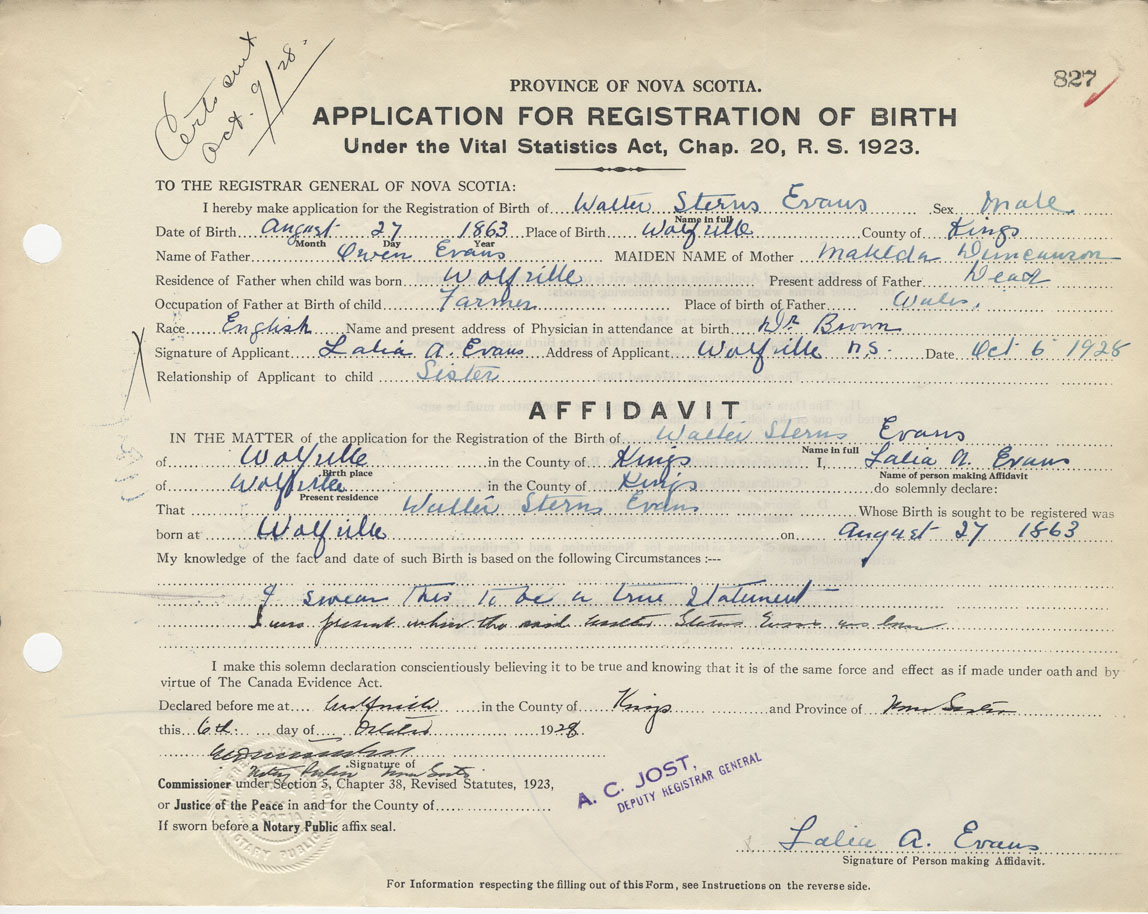 Certs sent
Oct. 9/28.
827
PROVINCE OF NOVA SCOTIA.
APPLICATION FOR REGISTRATION OF BIRTH
Under the Vital Statistics Act, Chap. 20, R. S. 1923.
TO THE REGISTRAR GENERAL OF NOVA SCOTIA:
I hereby make application for the Registration of Birth of Walter Sterns Evans Sex Male
Name in full
Date of Birth August 27 1863 Place of Birth Wolfville County of Kings
Month Day Year
Name of Father Owen Evans MAIDEN NAME of Mother Matilda Duncanson
Residence of Father when child was born Wolfville Present address of Father Dead
Occupation of Father at Birth of child Farmer Place of birth of Father Wales.
Race English Name and present address of Physician in attendance at birth Dr Brown
Signature of Applicant Lalia A. Evans Address of Applicant Wolfville N.S. Date Oct 6 1928
Relationship of Applicant to child Sister
AFFIDAVIT
IN THE MATTER of the application for the Registration of the Birth of Walter Sterns Evans
Name in full
of Wolfville in the County of Kings I, Lalia A. Evans
Birth place Name of person making Affidavit
of Wolfville in the County of Kings do solemnly declare:
Present residence
That Walter Sterns Evans Whose Birth is sought to be registered was
born at Wolfville on August 27 1863
My knowledge of the fact and date of such Birth is based on the following Circumstances :---
I swear this to be a true statement
I was present when the said Walter Sterns Evans was born
I make this solemn declaration conscientiously believing it to be true and knowing that it is of the same force and effect as if made under oath and by
virtue of The Canada Evidence Act.
Declared before me at Wolfville in the County of Kings and Province of Nova Scotia
this 6th day of October 1928
Signature of
Notary Public Nova Scotia
Commissioner under Section 5, Chapter 38, Revised Statutes, 1923,
or Justice of the Peace in and for the County of
If sworn before a Notary Public affix seal.
A. C. JOST,
DEPUTY REGISTRAR GENERAL
NOTARY PUBLIC
Lalia A. Evans
Signature of Person making Affidavit.
For Information respecting the filling out of this Form, see Instructions on the reverse side.